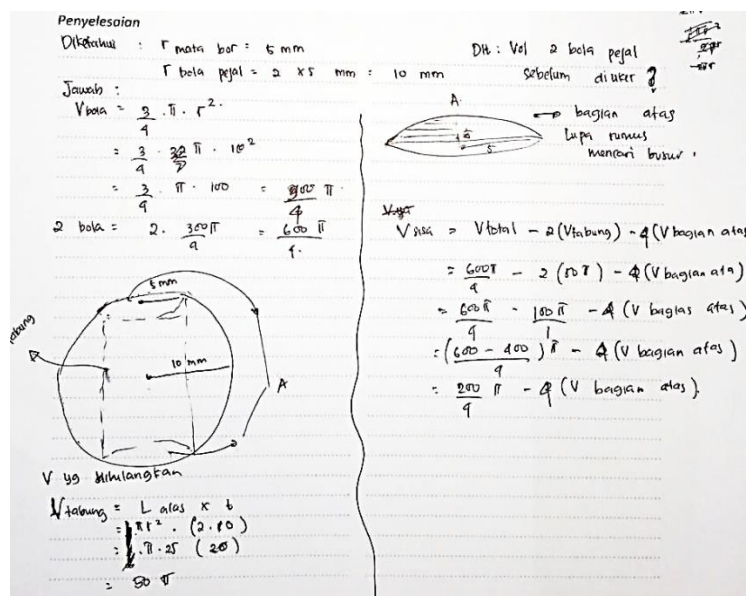 Penyelesaian
Diketahui : r mata bor = 5 mm
r bola pejal = 2 x 5 mm = 10 mm
Jawab :
V bola = 3/4 . π . r².
= 3/4 . π . 10²
= 3/4 . π . 100 = 300 π / 4
2 bola = 2 . 300π/4 = 600 π / 4.
5 mm
tabung
10 mm
A
V yg dihilangkan
V tabung = L alas x t
= πr² . (2.10)
= π . 25 (20)
= 50 π
Dit : Vol 2 bola pejal
sebelum diukir ?
A
bagian atas
5
Lupa rumus
mencari busur.
V sisa = V total - 2(V tabung) - 4(V bagian atas
= 600π/4 - 2 (50π) - 4(V bagian ata)
= 600π/4 - 100π/1 - 4 (V bagias atas)
= (600 - 400 / 4) π - 4 (V bagian atas)
= 200/4 π - 4 (V bagian atas).